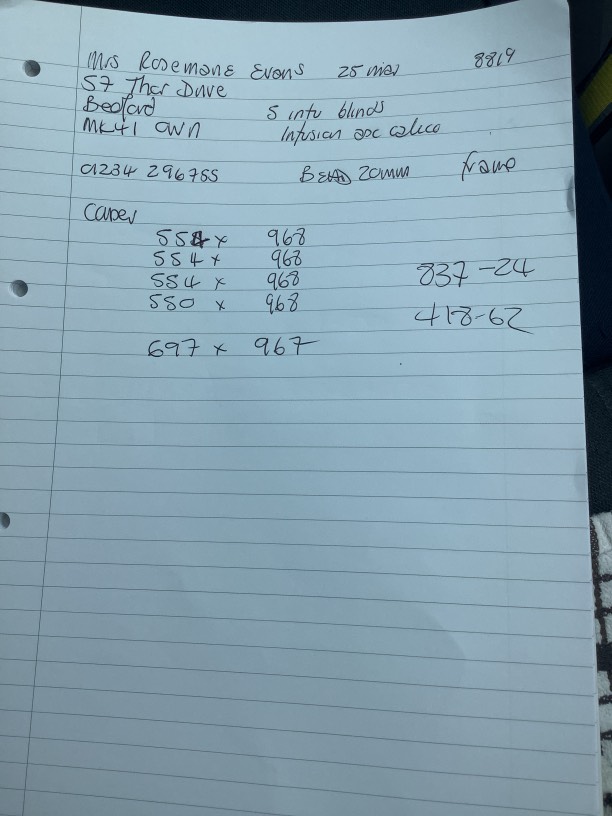 Mrs Rosemarie Evans 25 mm 8819
57 Thor Drive
Bedford 5 intu blinds
MK41 0WN Infusion asc calico
01234 296755 Bead 20mm frame
554 x 968
554 x 968
554 x 968 837-24
550 x 968 418-62
697 x 967